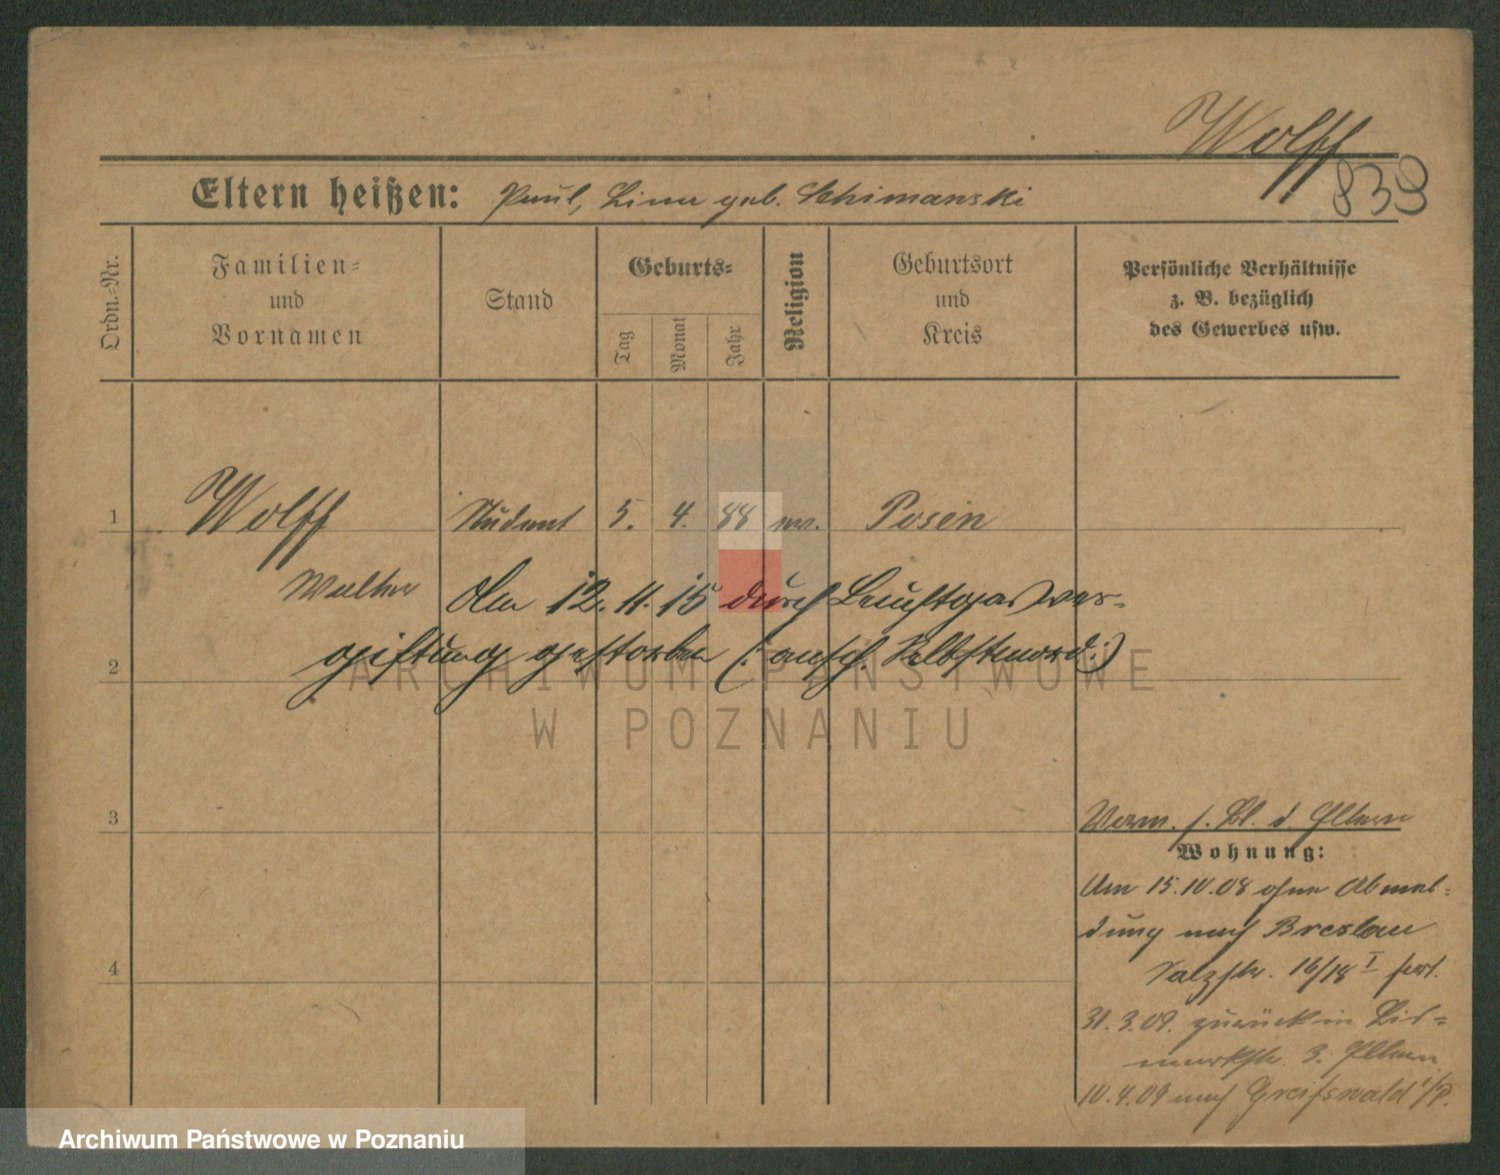 Wolff
839
Eltern heißen: Paul, Lina geb. Schimanski
Ordn.-Nr.
Familien-
und
Vornamen
Stand
Geburts-
Tag
Monat
Jahr
Religion
Geburtsort
und
Kreis
Persönliche Verhältnisse
z. B. bezüglich
des Gewerbes usw.
1 Wolff Student 5. 4. 88 ev. Posen
Walter Am 12. 11. 15 durch Leuchtgasver-
giftung gestorben (: ansch. Selbstmord :)
2
3
4
Verm. s. Bl. d. Eltern
Wohnung:
Am 15.10.08 ohne Abmel-
dung nach Breslau
Salzstr. 16/18 I fort.
31.3.09. zurück in Bis-
marckstr. 3. Eltern
10.4.09 nach Greifswald i/P.
ARCHIWUM PAŃSTWOWE
W POZNANIU
Archiwum Państwowe w Poznaniu